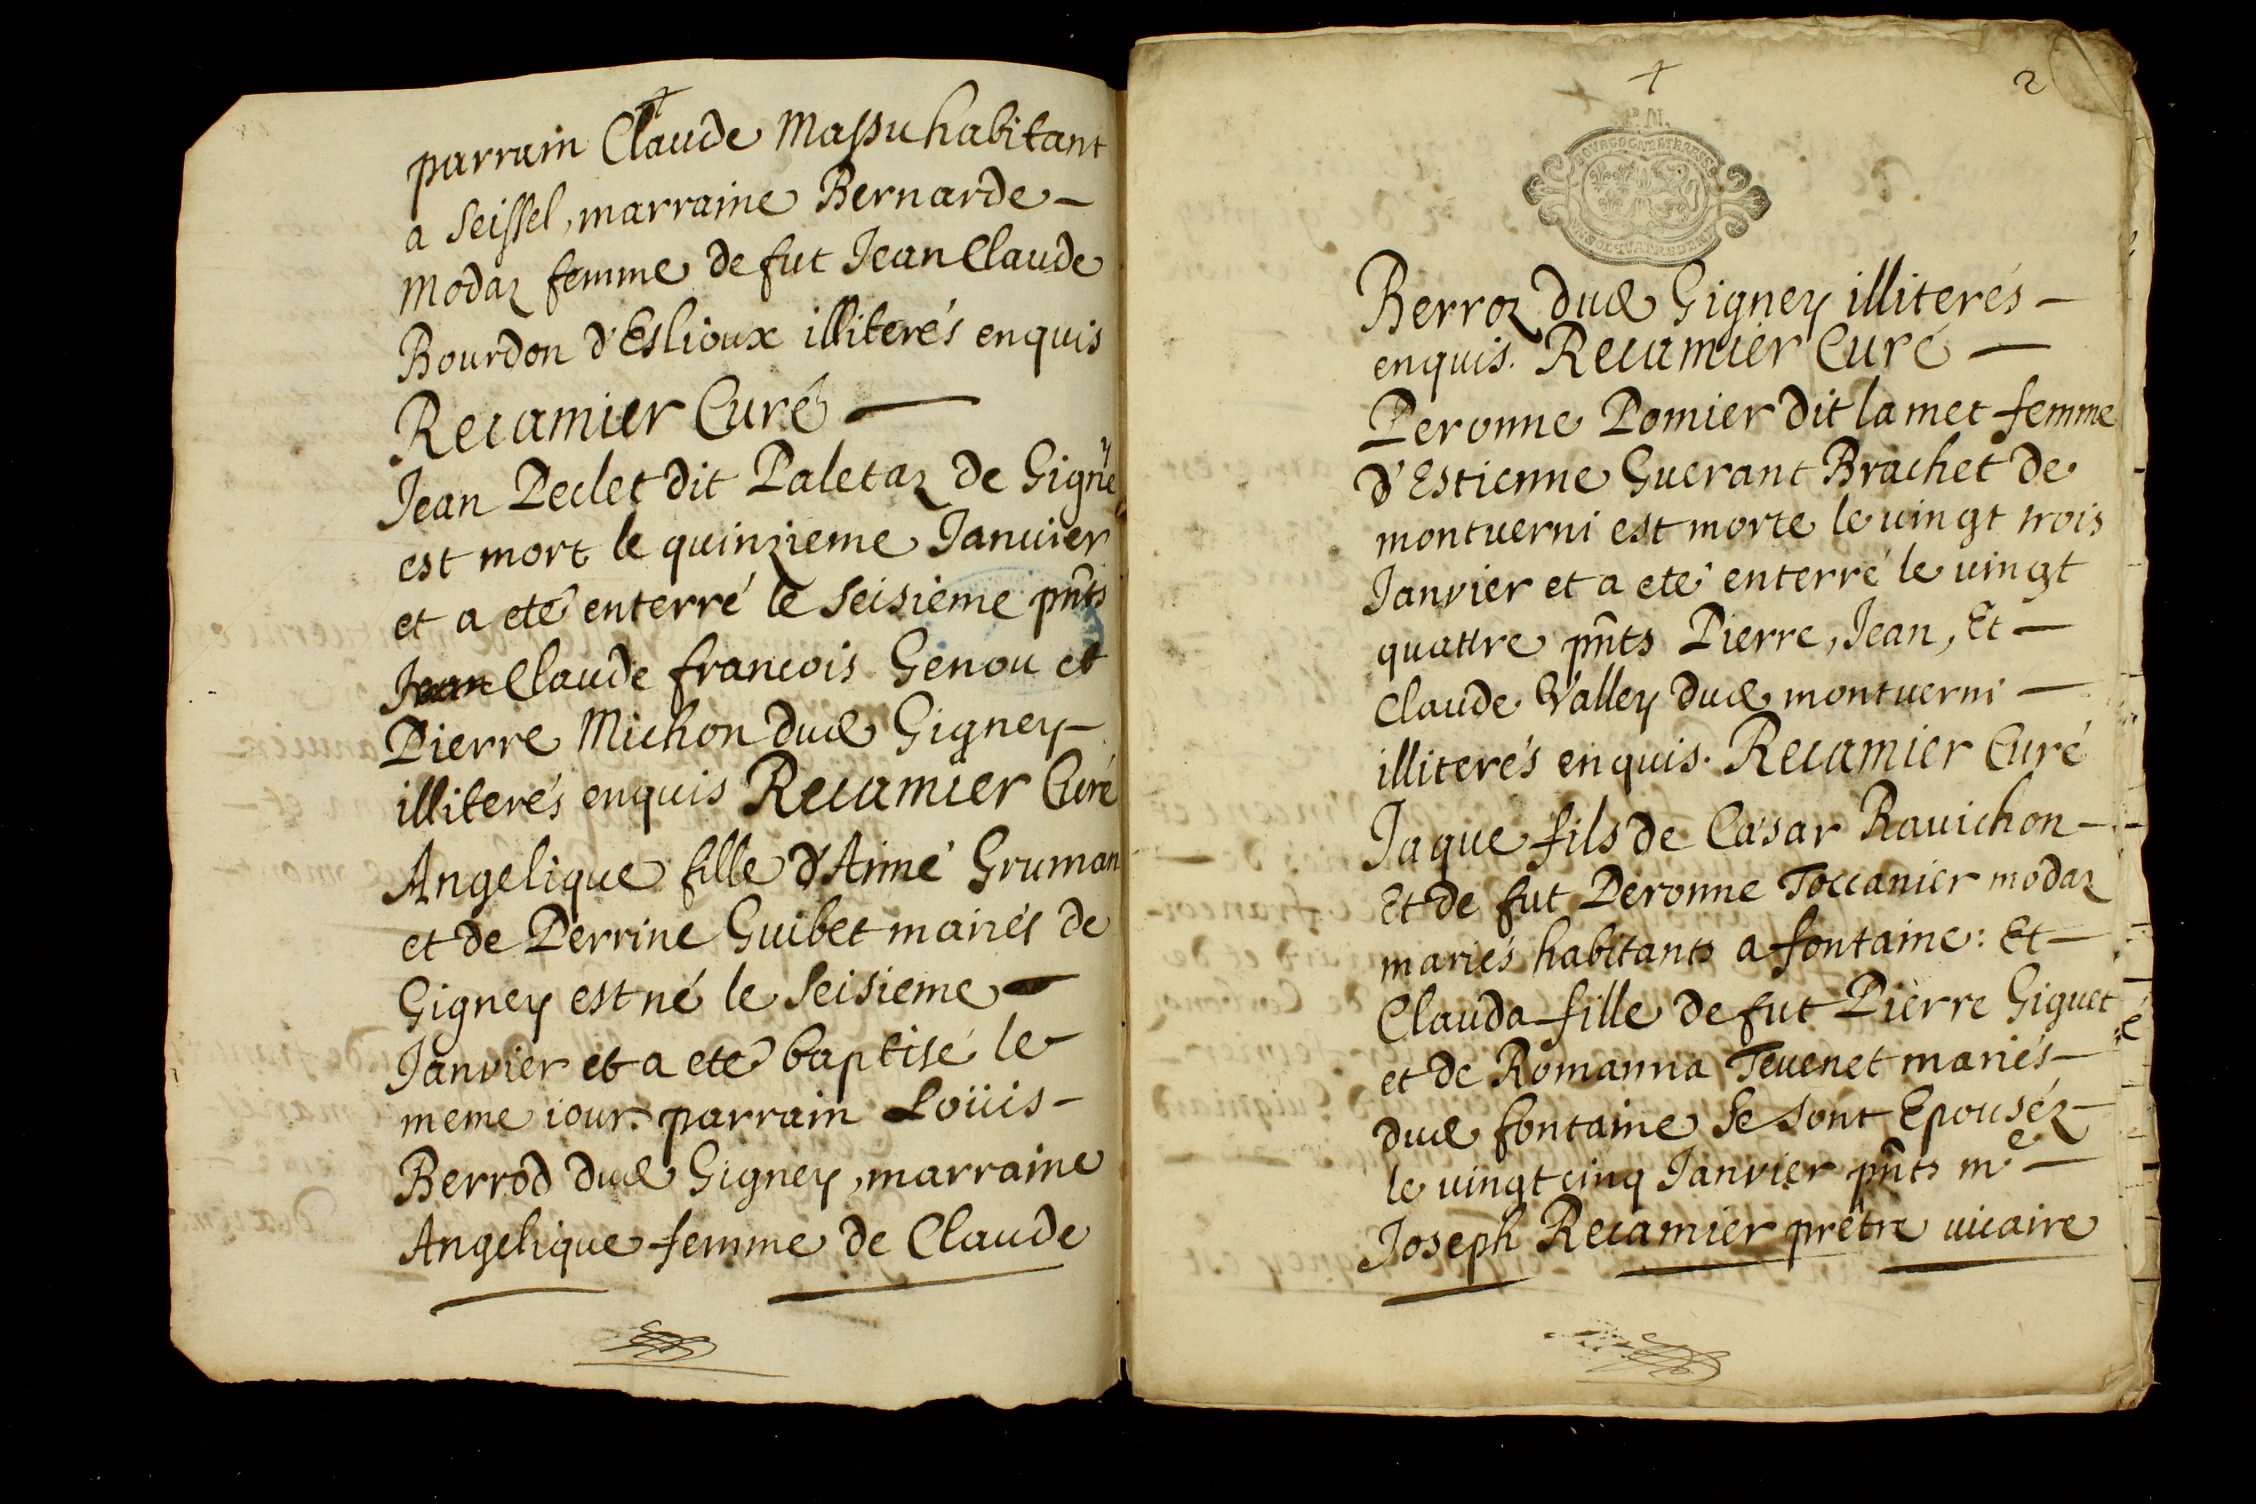 parrain Claude Massu habitant
a Seissel, marraine Bernarde -
Modaz femme de fut Jean Claude
Bourdon d'Eslioux illiterés enquis
Recamier Curé -
Jean Peclet dit Paletaz de Gigney
est mort le quinzieme Januier
et a eté enterré le Seisieme pnts
Jean Claude francois Genou et
Pierre Michon dud Gigney -
illiterés enquis Recamier Curé
Angelique fille d'Aimé Gruman
et de Perrine Guibet mariés de
Gigney est né le Seisieme -
Janvier et a eté baptisé le -
meme iour. parrain Loüis -
Berrod dud Gigney, marraine
Angelique femme de Claude
2
Berroz dud Gigney illiterés -
enquis. Recamier Curé -
Peronne Pomier dit la met femme
d'Estienne Guerant Brachet de
montuerni est morte le uingt trois
Janvier et a eté enterré le uingt
quattre pnts Pierre, Jean, Et -
Claude Valley dud montuerni -
illiterés enquis. Recamier Curé
Jaque fils de Cæsar Rauichon -
Et de fut Peronne Toccanier modaz
mariés habitants a fontaine: Et -
Clauda fille de fut Pierre Giguet
et de Romanna Teuenet mariés -
dud fontaine Se sont Epouséz -
le uingt cinq Janvier pnts me -
Joseph Recamier prêtre uicaire